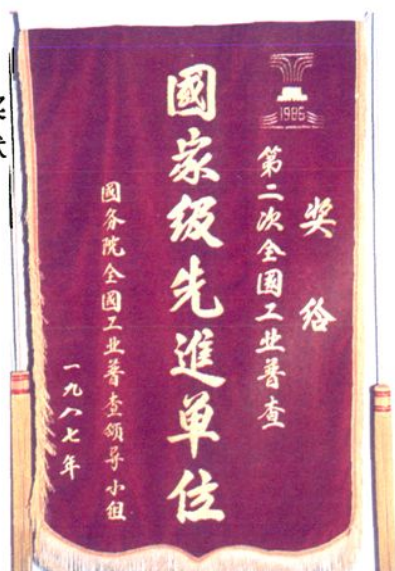 奖给
1985
第二次全國工业普查
國家级先進单位
國务院全國工业普查领导小组
一九八七年